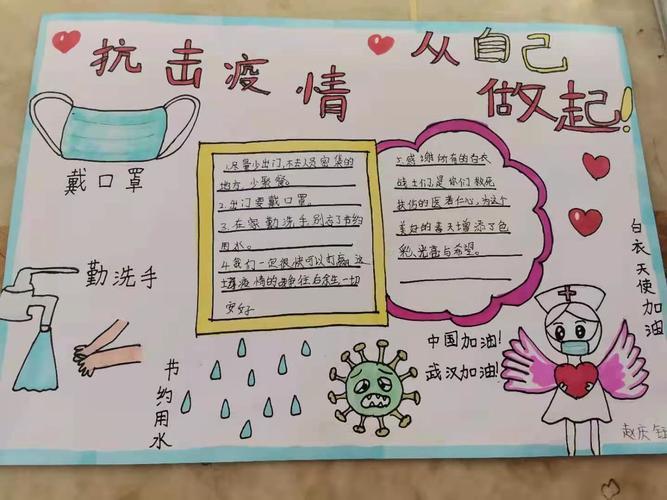 抗击疫情
从自己
做起!
戴口罩
勤洗手
节约用水
1.尽量少出门,不去人员密集的
地方,少聚餐。
2.出门要戴口罩。
3.在家勤洗手别忘了节约
用水。
4.我们一定很快可以打赢这
疫情的 往后余生,一切
安好
所有的白衣
战士们,是你们救死
扶伤的医者仁心,为这个
美好的春天增添了色
彩,光亮与希望。
中国加油!
武汉加油!
白衣天使加油
赵庆